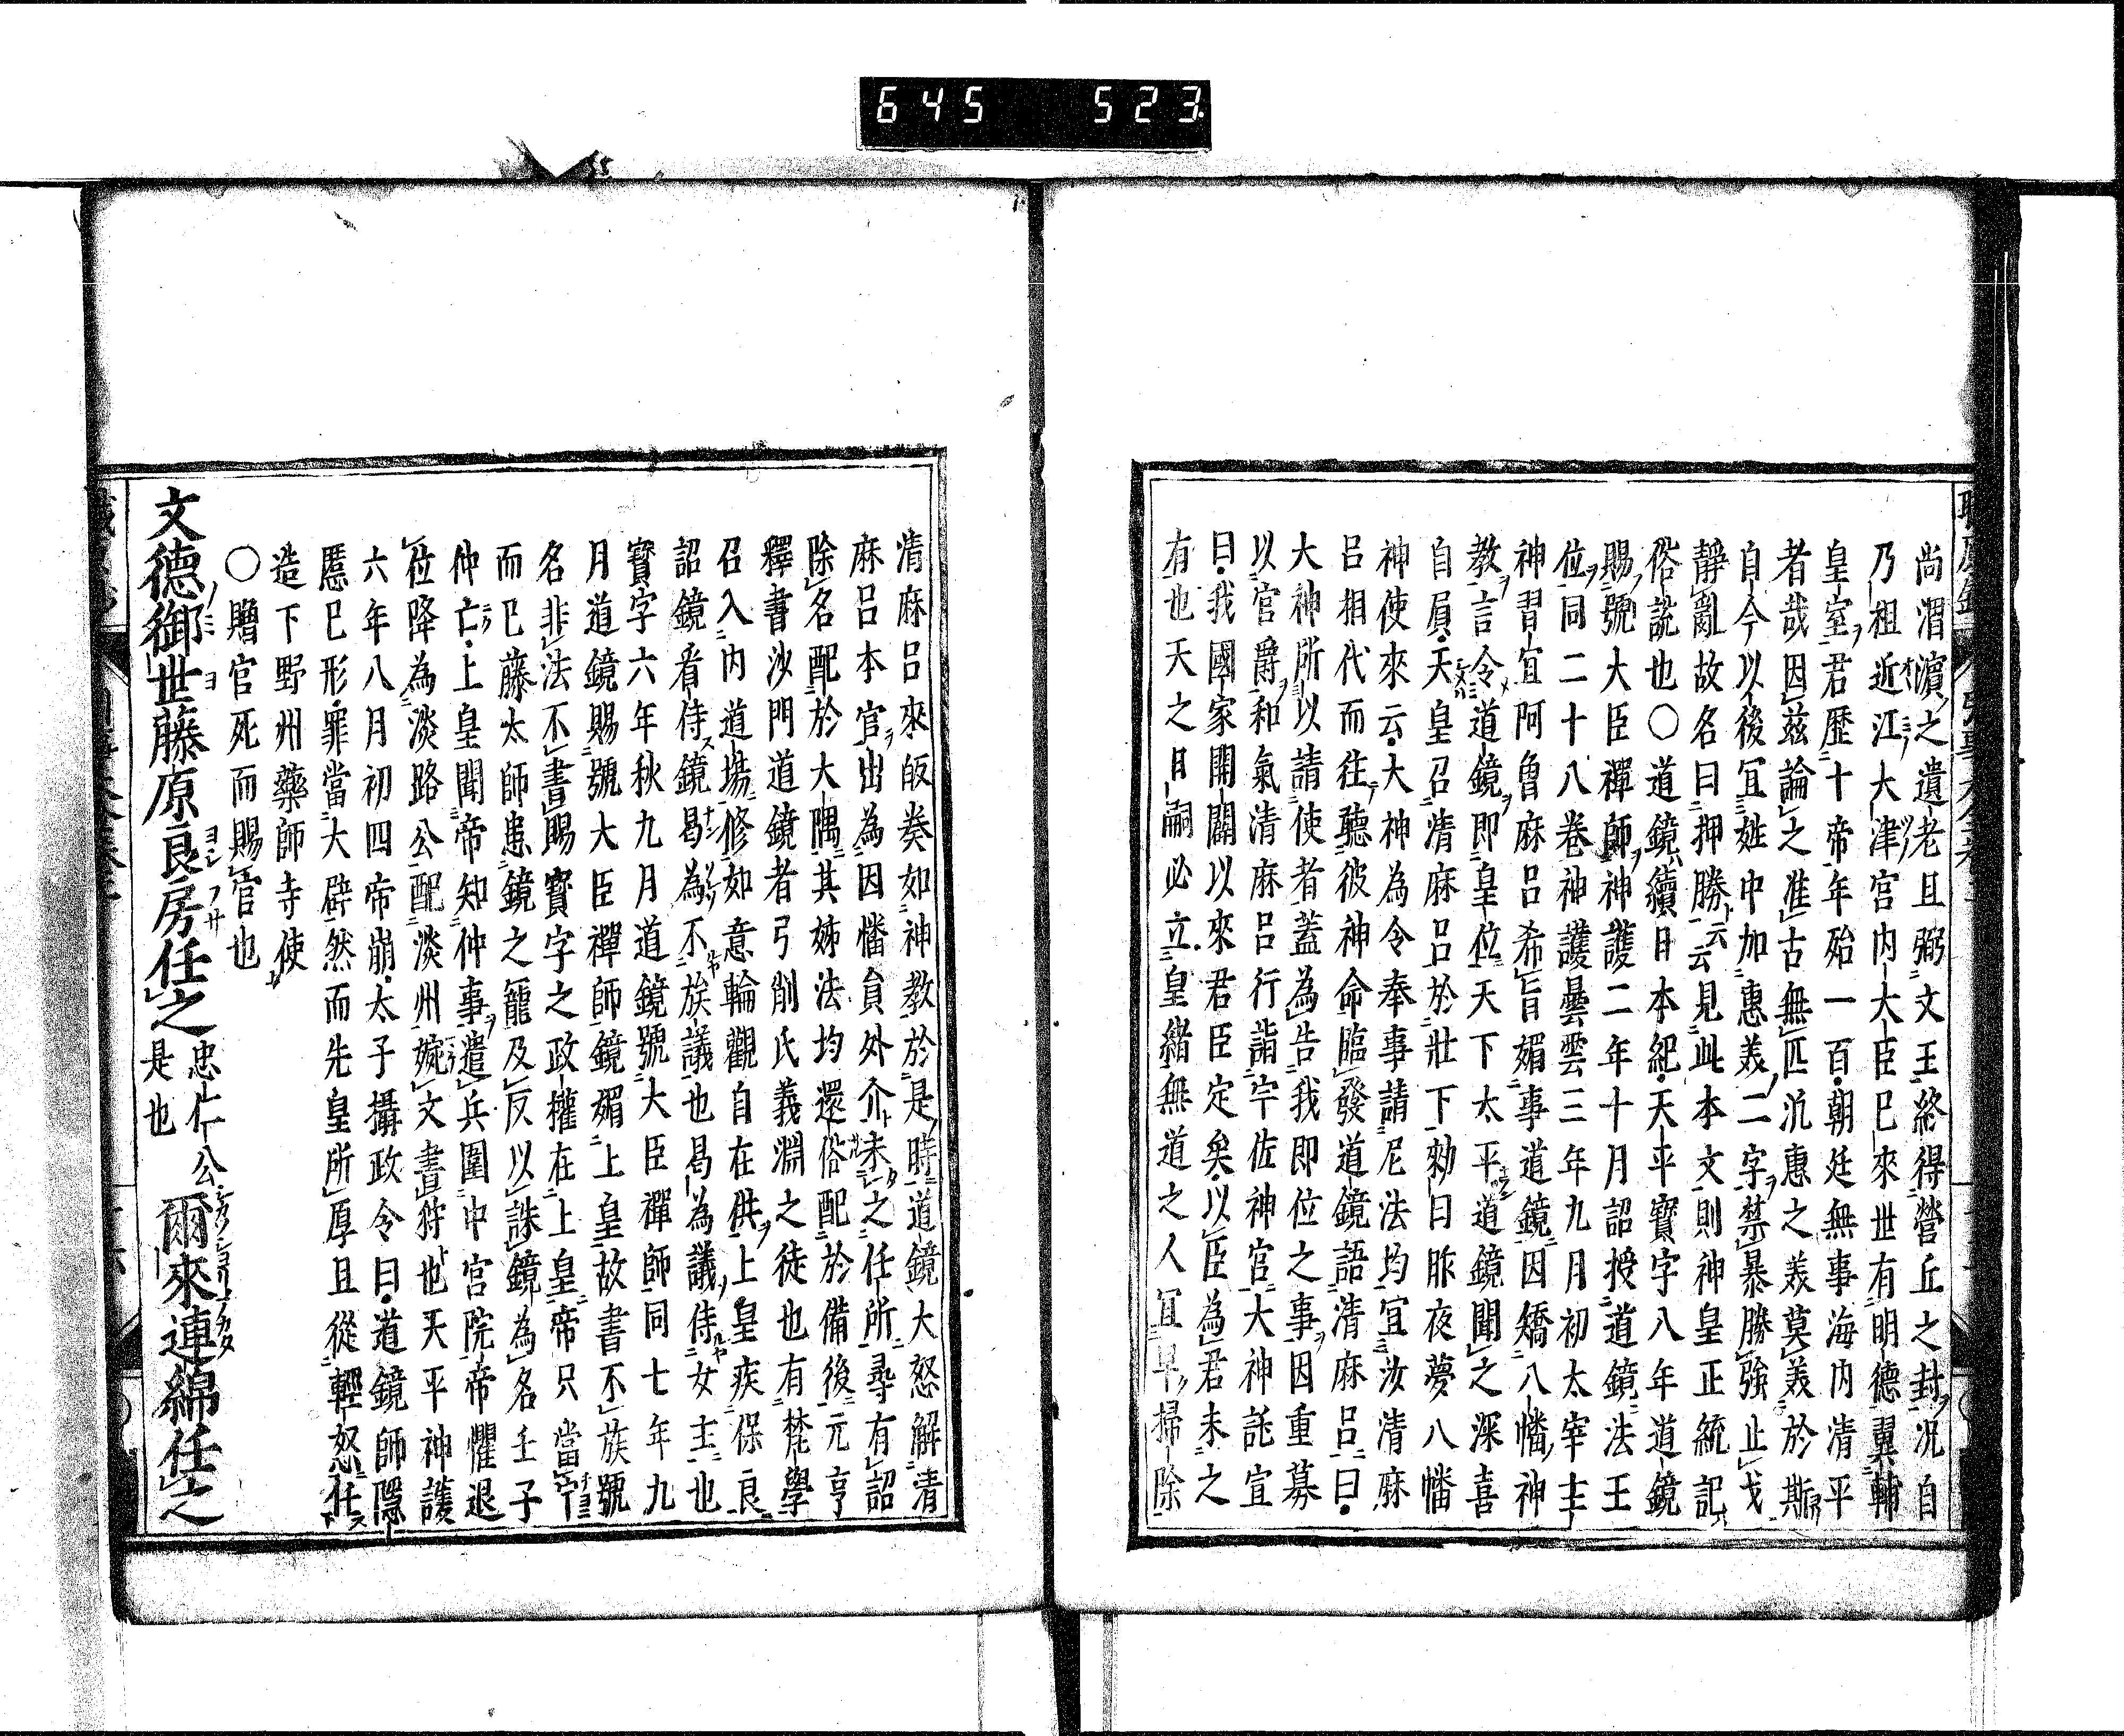 645 523
尚渭濵之遺老且弼文王終得營丘之封況自
乃祖近江大津宮内大臣已來世有明德翼輔
皇室君歷十帝年殆一百朝廷無事海内清平
者哉因茲論之准古無匹汎惠之美莫美於斯
自今以後冝姓中加惠美二字禁暴勝強止戈
靜亂故名曰押勝云云見此本文則神皇正統記
俗說也○道鏡續日本紀天平寶字八年道鏡
賜號大臣禪師神護二年十月詔授道鏡法王
位同二十八卷神護曇雲三年九月初太宰主
神習宜阿魯麻呂希旨媚事道鏡因矯八幡神
教言令道鏡即皇位天下太平道鏡聞之深喜
自屓天皇召清麻呂於牀下勑曰昨夜夢八幡
神使來云大神為令奉事請尼法均宜汝清麻
呂相代而往聽彼神命臨發道鏡語清麻呂曰
大神所以請使者蓋為告我即位之事因重募
以官爵和氣清麻呂行詣宇佐神宮大神託宣
曰我國家開闢以來君臣定矣以臣為君未之
有也天之日嗣必立皇緒無道之人冝早掃除
清麻呂來皈奏如神教於是時道鏡大怒解清
麻呂本官出為因幡員外介未之任所尋有詔
除名配於大隅其姊法均還俗配於備後元亨
釋書沙門道鏡者弓削氏義淵之徒也有梵學
召入内道場修如意輪觀自在供上皇疾保良
詔鏡看侍鏡曷為不族議也曷為議侍女主也
寳字六年秋九月道鏡號大臣禪師同七年九
月道鏡賜號大臣禪師鏡媚上皇故書不族號
名非法不書賜寶字之政權在上皇帝只當宁
而已藤太師患鏡之寵及反以誅鏡為名壬子
仲亡上皇聞帝知仲事遣兵圍中宮院帝懼退
位降為淡路公配淡州婉文書狩也天平神護
六年八月初四帝崩太子攝政令曰道鏡師隱
慝已形罪當大辟然而先皇所厚且從輕怒任
造下野州藥師寺使
○贈官死而賜官也
文德御世藤原良房任之忠仁公是也爾來連綿任之